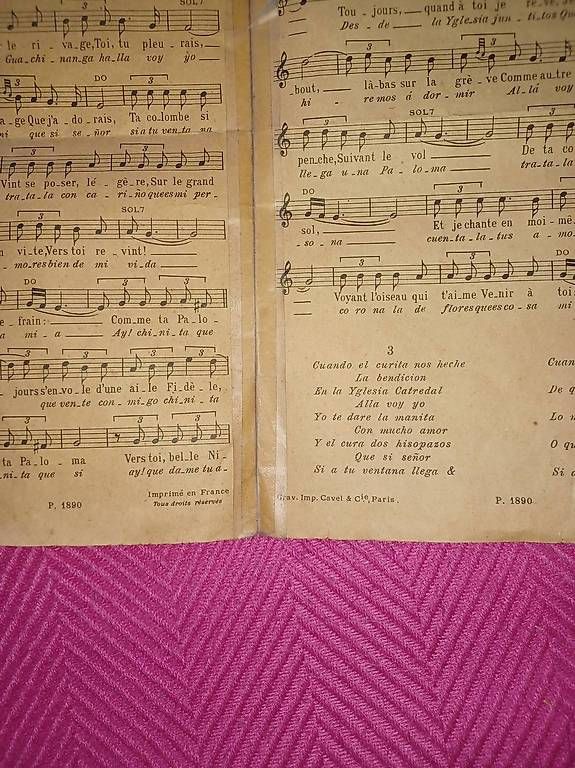 SOL7
le ri_va_ge,Toi, tu pleu_rais,
Gua_chi_nan_ga ha_lla voy yo
DO
a_ge Que j'a_do_rais, Ta co_lombe si
mi que si se_ñor si a tu ven_ta_na
Vint se po_ser, lé_gè_re, Sur le grand
tra_ta_la con ca_ri_ño que es mi per_
SOL7
vi_te, Vers toi re_vint!
_mo_res bien de mi vi_da
DO
e_frain: Com_me ta Pa_lo_
a mi_a Ay! chi_ni_ta que
jours s'en_vo_le d'une ai_le Fi_dè_le,
que ven_te con_mi_go chi_ni_ta
ta Pa_lo_ma Vers toi, bel_le Ni_
ni_ta que si ay! que da_me tu a_
P. 1890
Imprimé en France
Tous droits réservés
Tou_jours, quand à toi je
Des_de la Ygle_sia jun_ti_tos
bout, là-bas sur la grè_ve Comme au_tre
hi_re mos á dor_mir Al_lá voy
SOL7
pen_che, Suivant le vol De ta co
lle_ga u_na Pa_lo_ma tra_ta_la
DO
sol, Et je chante en moi_mê_
_so_na cuen_ta_la tus a_mo_
DO
Voyant l'oiseau qui t'ai_me Ve_nir à toi
co ro na la de flores que es co_sa mi
3
Cuando el curita nos heche
La bendicion
En la Yglesia Catredal
Alla voy yo
Yo te dare la manita
Con mucho amor
Y el cura dos hisopazos
Que si señor
Si a tu ventana llega &
Grav. Imp. Cavel & Cie, Paris.
P. 1890